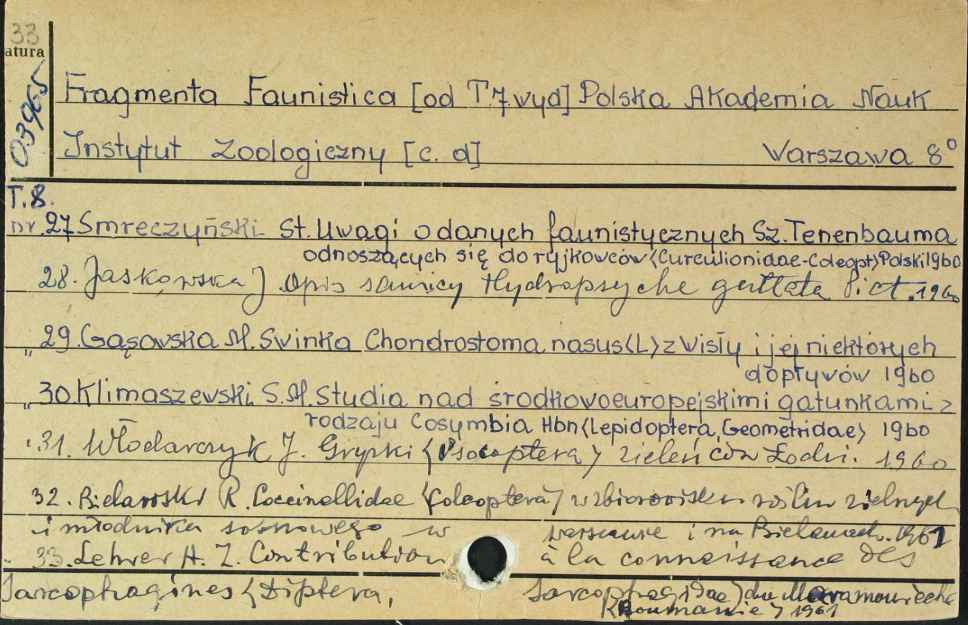 33
atura
03965
Fragmenta Faunistica [od T7 wyd] Polska Akademia Nauk
Instytut Zoologiczny [c. d] Warszawa 8°
T. 8.
nr. 27 Smreczyński St. Uwagi o danych faunistycznych Sz. Tenenbauma
odnoszących się do ryjkowców (Curculionidae-Coleopt) Polski 1960
28. Jaskowska J. Opis samicy Hydropsyche guttata Pict. 1960
„ 29. Gąsowska M. Świnka Chondrostoma nasus (L) z Wisły i jej niektórych
dopływów 1960
„ 30. Klimaszewski S. M. Studia nad środkowoeuropejskimi gatunkami z
rodzaju Cosymbia Hbn (Lepidoptera, Geometridae) 1960
31. Włodarczyk J. Gryzki (Psocoptera) zieleńców Łodzi. 1960
32. Bielawski R. Coccinellidae (Coleoptera) w zbiorowisku roślin zielnych
i młodnika sosnowego w Warszawie i na Bielanach. 1961
„ 33. Lehrer A. Z. Contribution à la connaissance des
Sarcophagines (Diptera, Sarcophagidae) du Maramoureche
(Roumanie) 1961